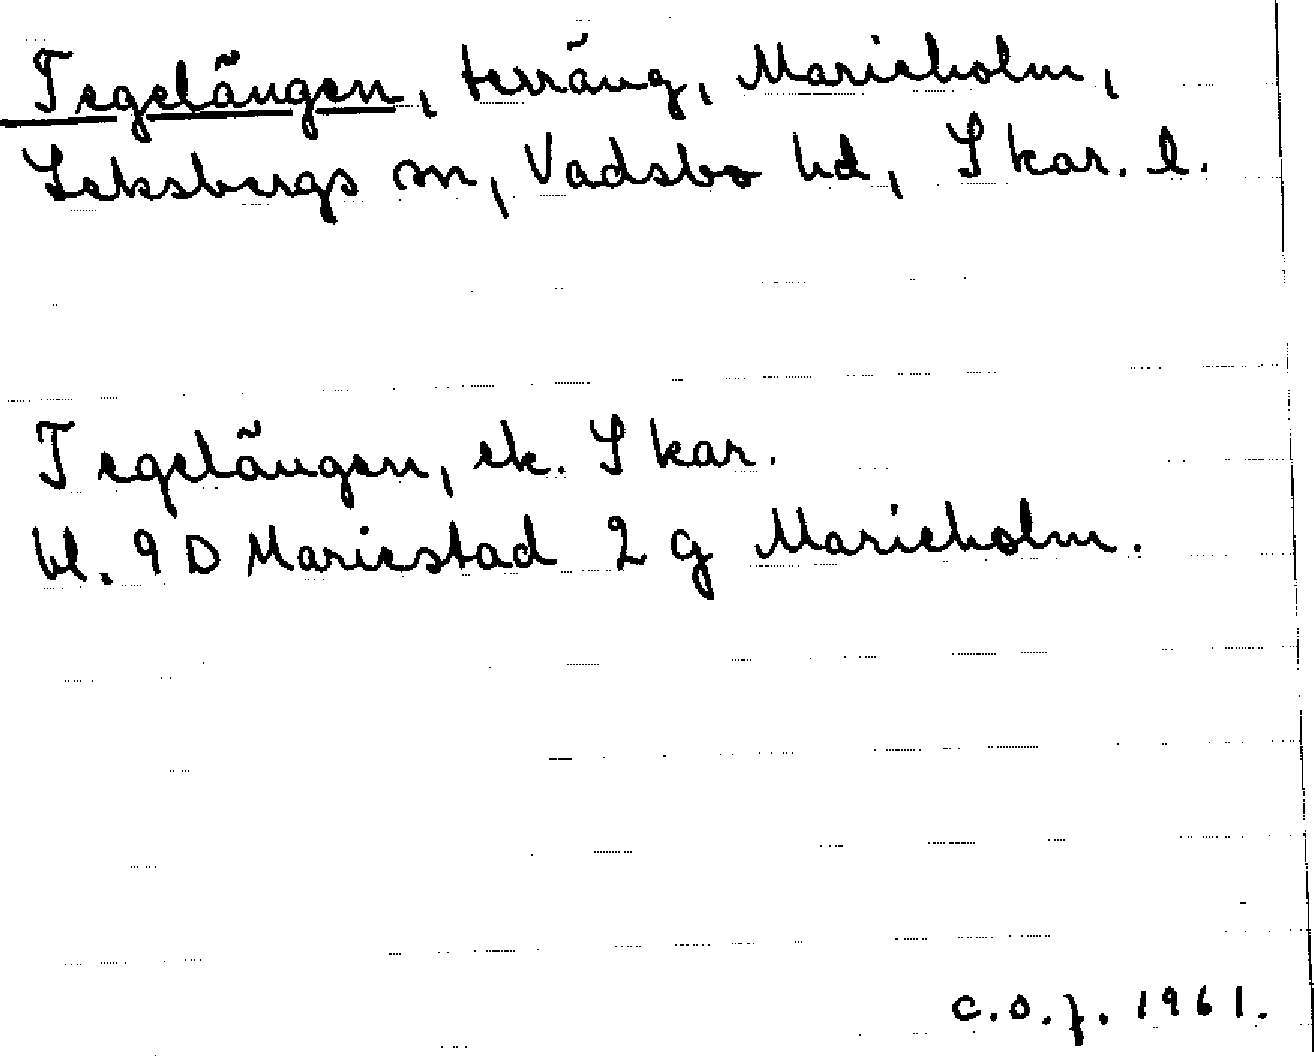 Tegelängen, terräng, Marieholm,
Leksbergs sn, Vadsbo hd, Skar. l.
Tegelängen, ek. Skar.
bl. 9 D Mariestad 2 g Marieholm.
C.O.f. 1961.